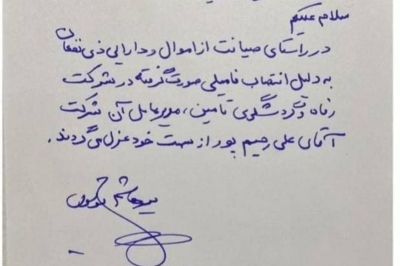 سلام علیکم
در راستای صیانت از اموال و دارایی ذی نفعان
به دلیل انتصاب فامیلی صورت گرفته در شرکت
رفاه و گردشگری تامین، مدیرعامل آن شرکت
آقای علی رحیم پور از سمت خود عزل می گردند.